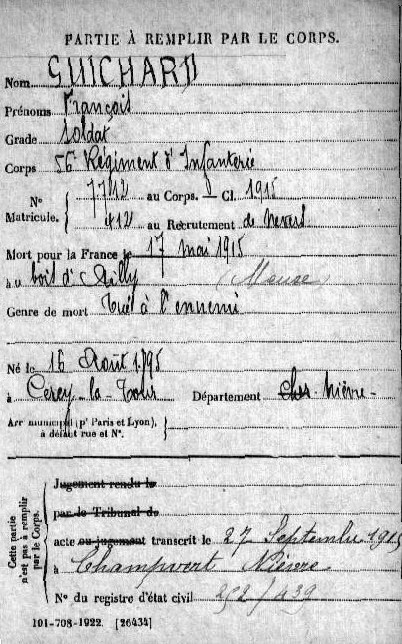 PARTIE À REMPLIR PAR LE CORPS.
Nom GUICHARD
Prénoms François
Grade Soldat
Corps 56 Régiment d'Infanterie
N° Matricule. 7712 au Corps. Cl. 1915
412 au Recrutement de Nevers
Mort pour la France le 17 mai 1915
à u bois d'Ailly (Meuse)
Genre de mort Tué à l'ennemi
Né le 16 Août 1895
à Cercy-la-Tour Département Cher Nièvre
Arr municipal (p' Paris et Lyon), à défaut rue et N°.
Cette partie n'est pas à remplir par le Corps.
Jugement rendu le
par le Tribunal de
acte ou jugement transcrit le 27 Septembre 1915
à Champvert Nièvre
N° du registre d'état civil 252/439
101-708-1922. [26434]